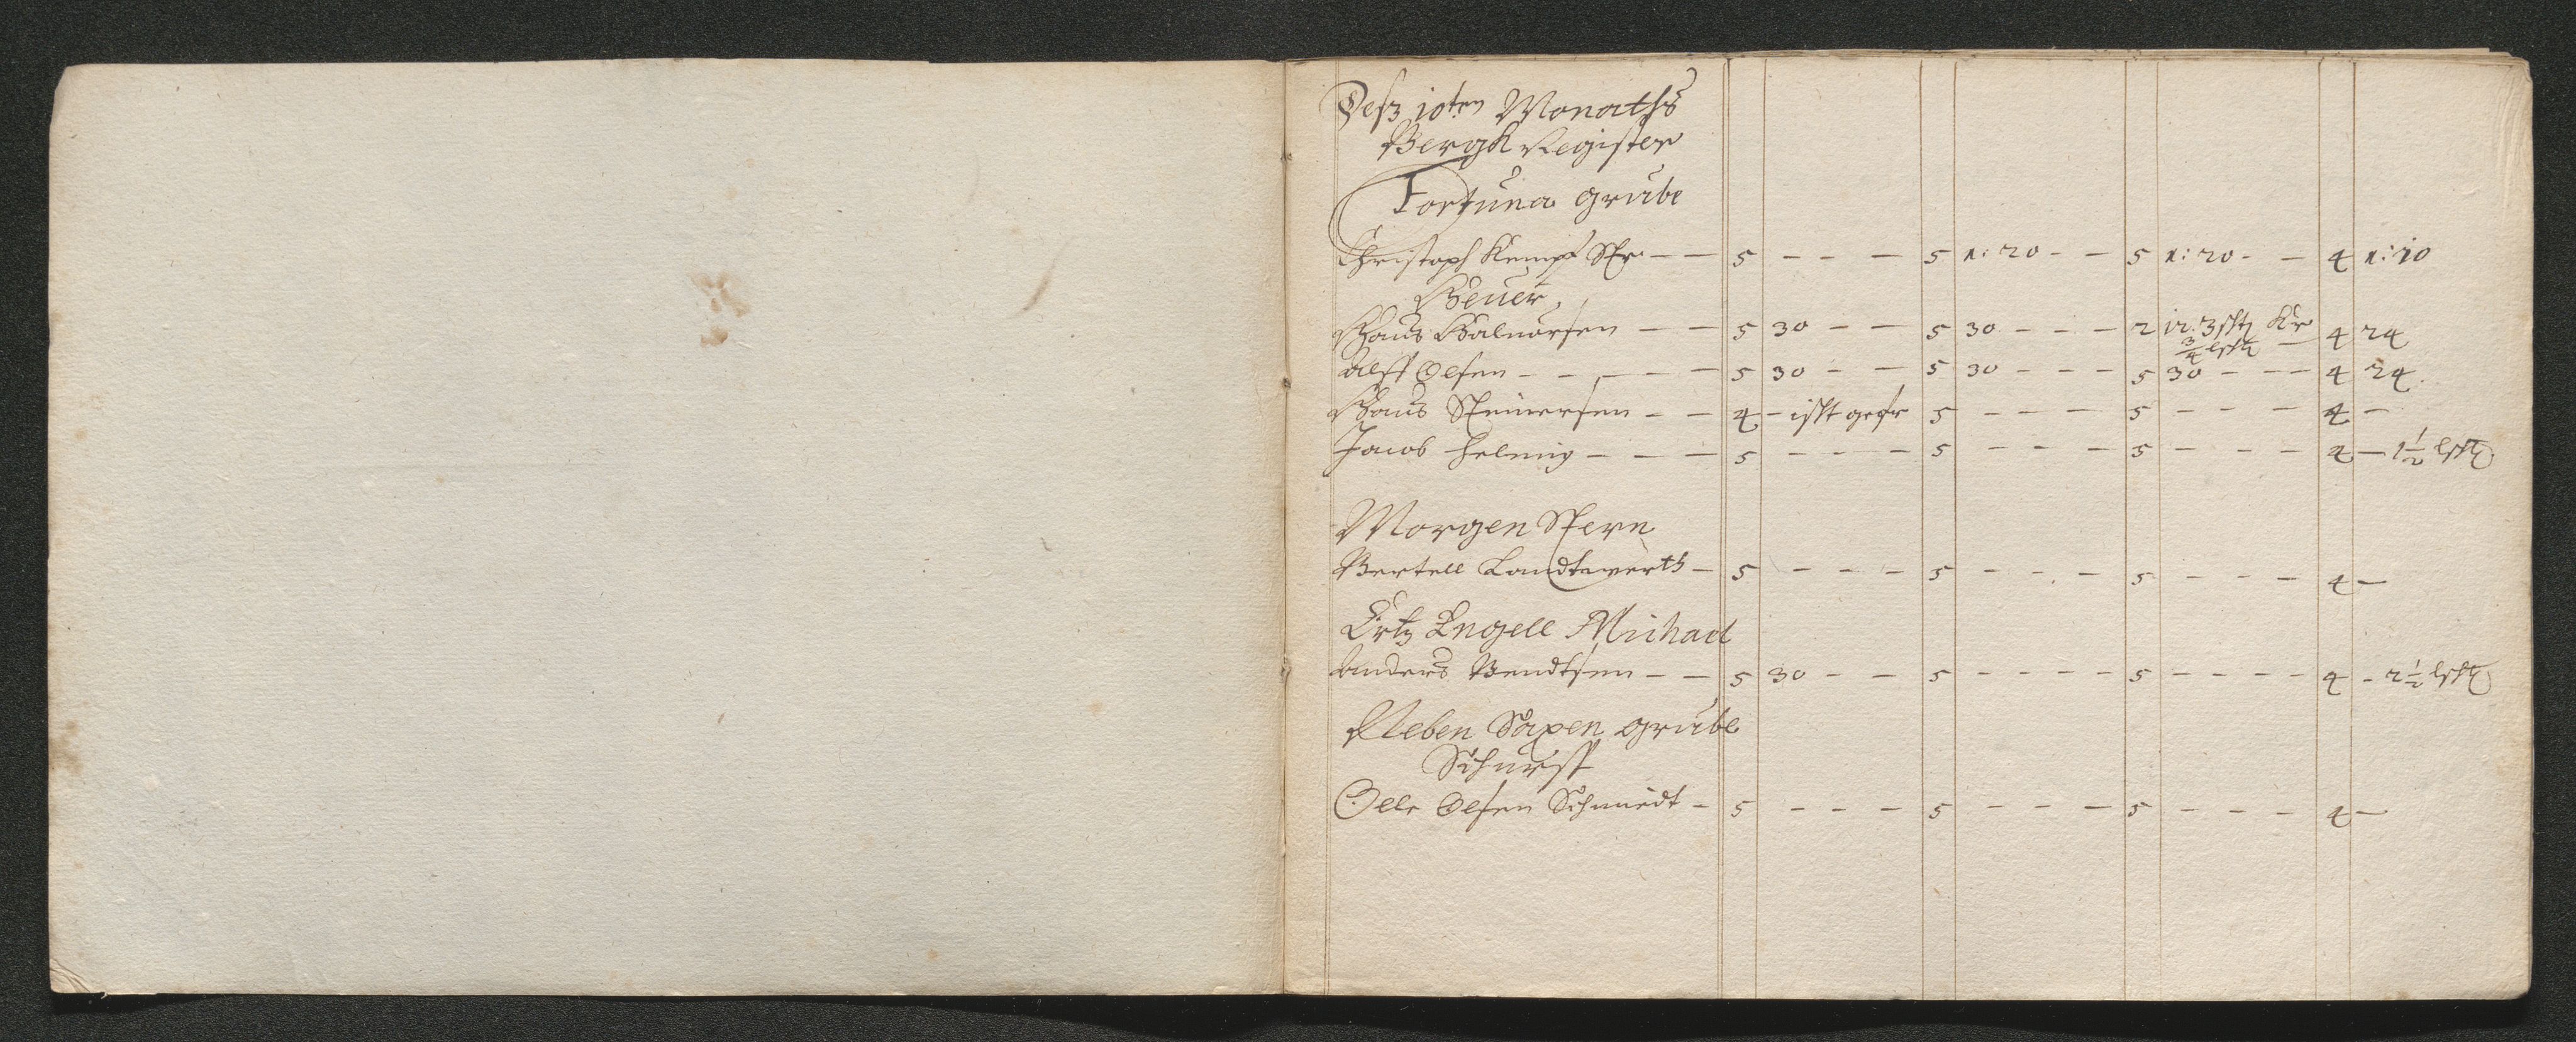 Deß 10ten Monaths
Bergk Register
Fortuna grube
Christoph Kempf Str — — 5 - - — 5 1: 20 - — 5 1: 20 - — 4 1: 10
Heuer,
Hans Halvorsen — — 5 30 - — 5 30 - - — 2 12: 3 schtz Kr 4 24
3/4 lschtz
Olff Olsen - - - - — 5 30 - — 5 30 - - - 5 30 - - — 4 24.
Hans Steinersen - — 4 - ischt 5 - - — 5 - - — 4 —
Jacob Helmig - - — 5 - - - 5 - - — 5 - - — 4 — 1 1/2 lschtz
Morgen Stern
Bertell Landtwerth - 5 - - - 5 - - - 5 - - — 4 —
Ertz Engell Michael
Anders Bendtsen - — 5 30 - — 5 - - - — 5 - - - — 4 - 2 1/2 lschtz
Neben Saxen grube
Schurff
Olle Olsen Schmiedt - 5 - - — 5 - - — 5 - - - 4 —